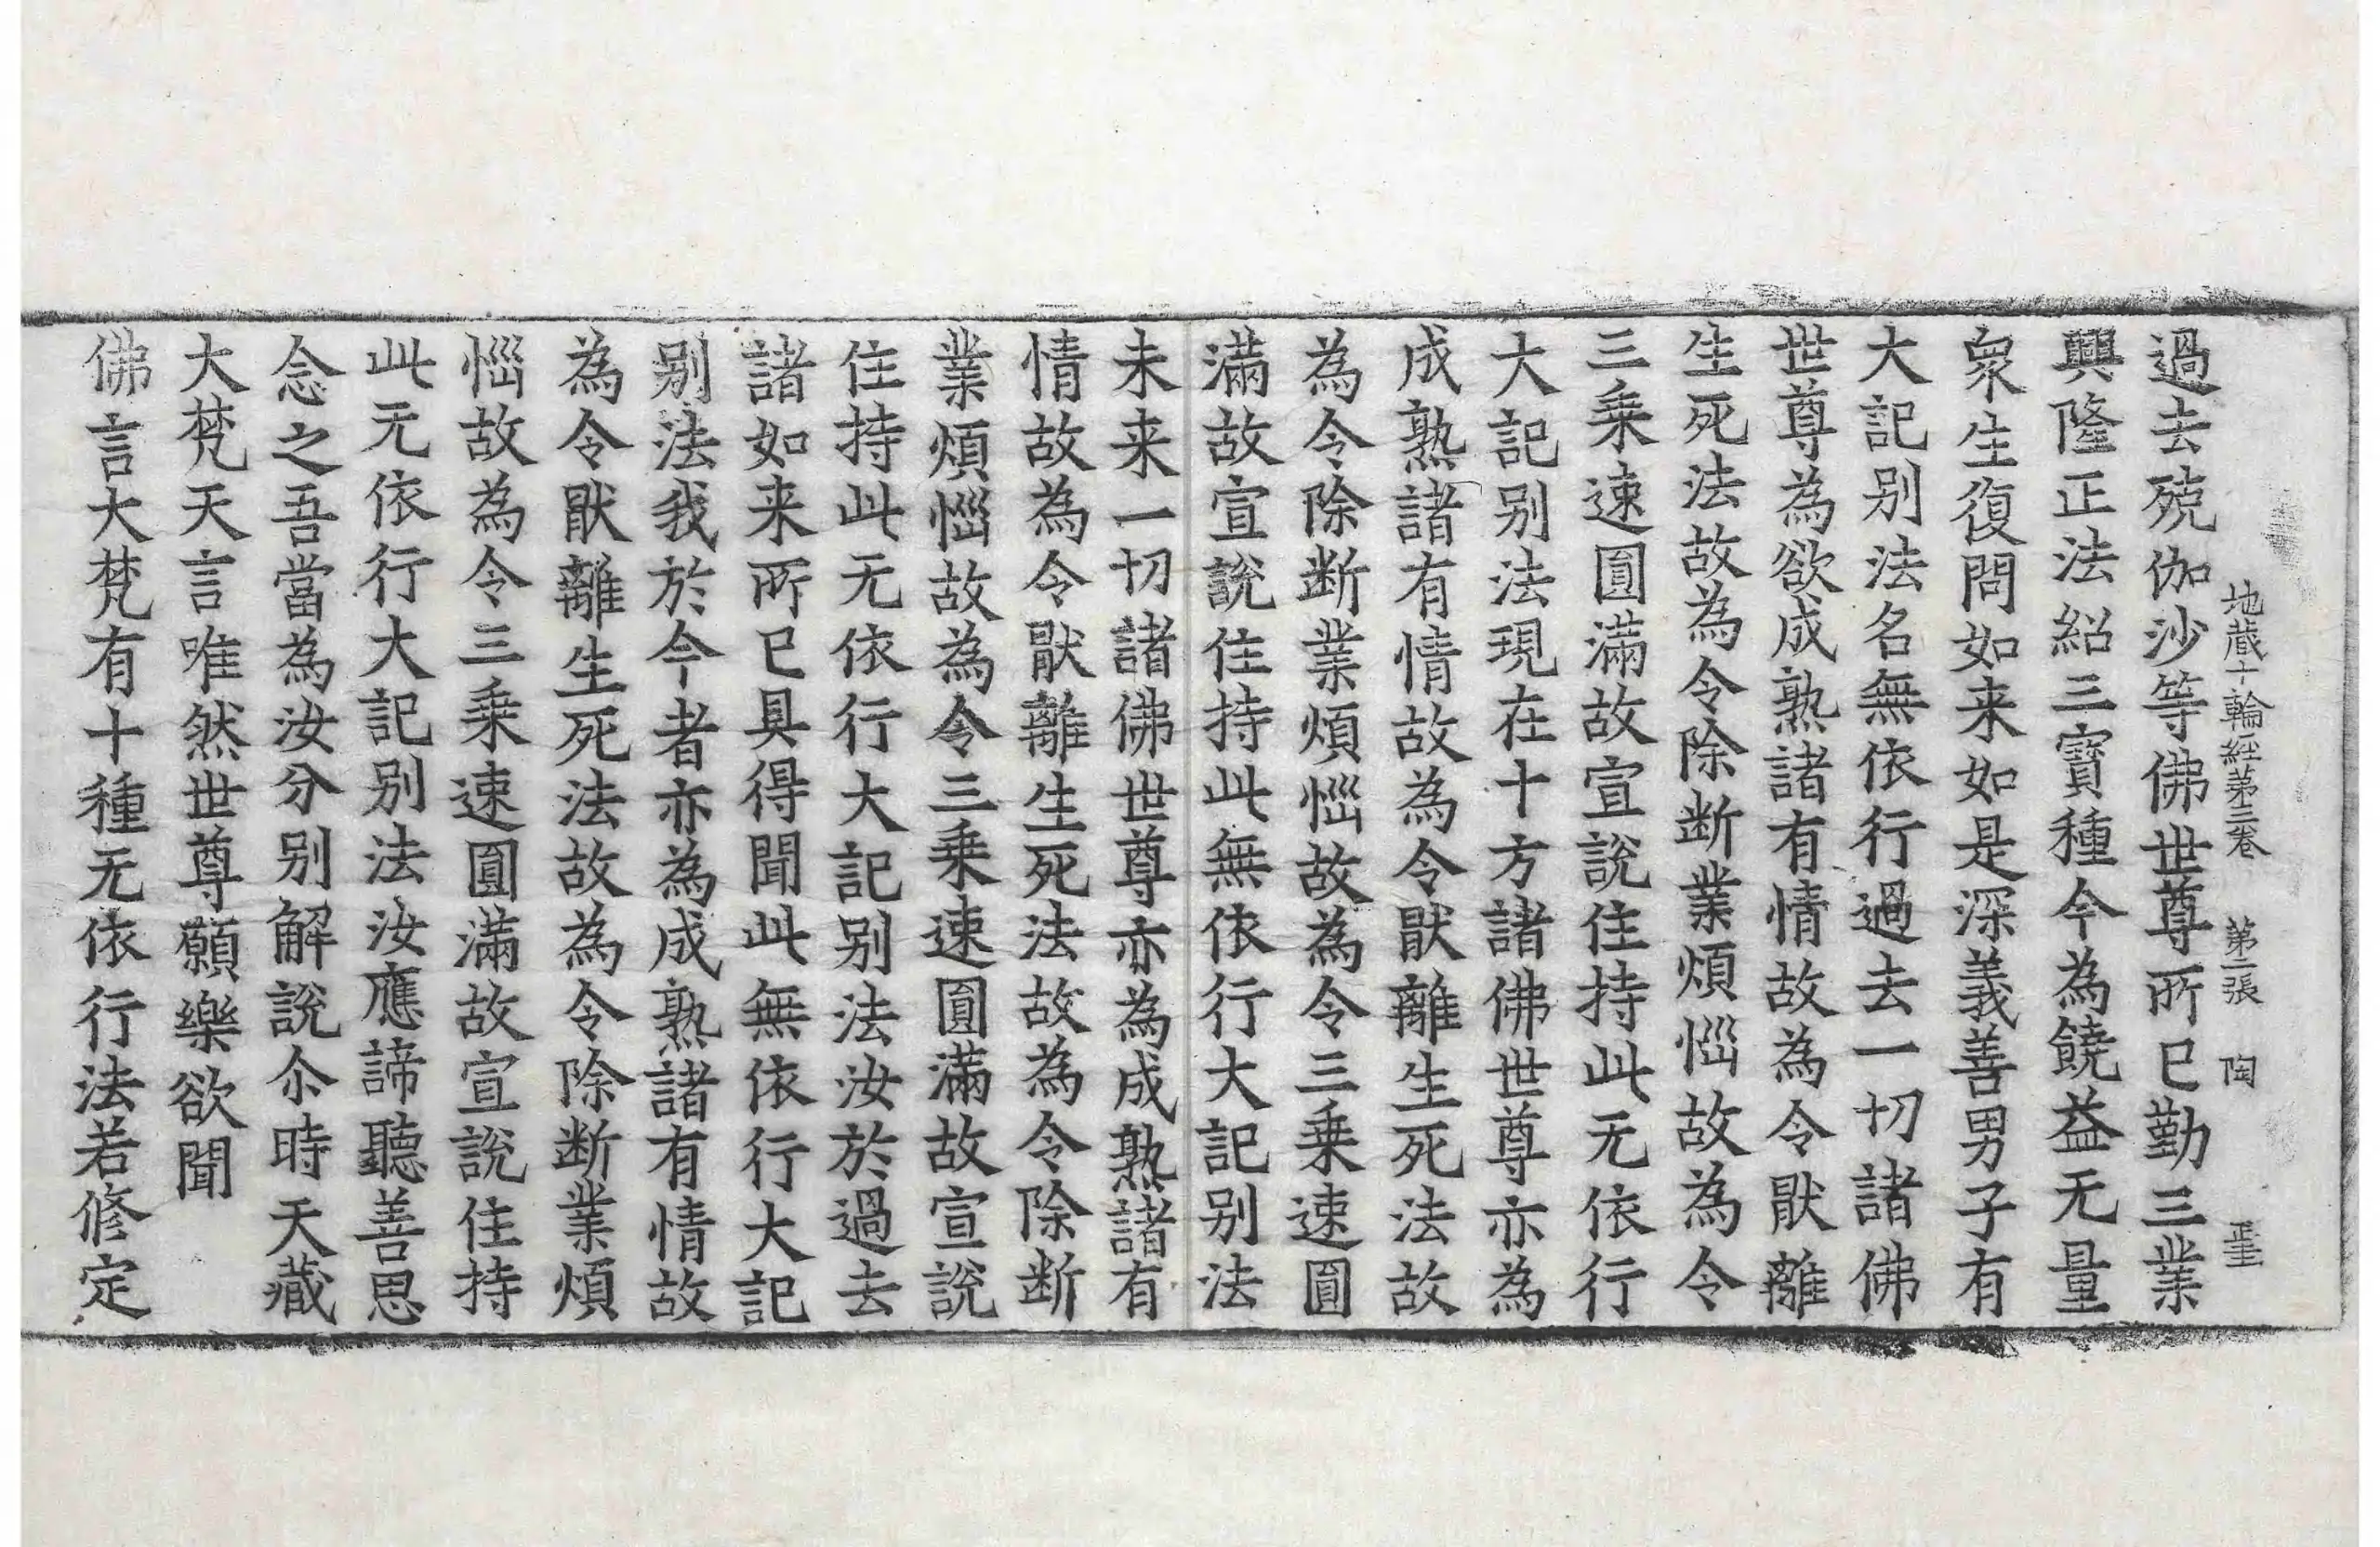 地藏十輪經苐三卷　第二張　陶
過去殑伽沙等佛世尊所已勤三業
興隆正法紹三寶種今為饒益无量
衆生復問如来如是深義善男子有
大記别法名無依行過去一切諸佛
世尊為欲成熟諸有情故為令猒離
生死法故為令除断業煩惱故為令
三乗速圓滿故宣說住持此无依行
大記别法現在十方諸佛世尊亦為
成熟諸有情故為令猒離生死法故
為令除断業煩惱故為令三乗速圓
滿故宣說住持此無依行大記别法
未来一切諸佛世尊亦為成熟諸有
情故為令猒離生死法故為令除断
業煩惱故為令三乗速圓滿故宣說
住持此无依行大記别法汝於過去
諸如来所已具得聞此無依行大記
别法我於今者亦為成熟諸有情故
為令猒離生死法故為令除断業煩
惱故為令三乗速圓滿故宣說住持
此无依行大記别法汝應諦聽善思
念之吾當為汝分别解說尒時天藏
大梵天言唯然世尊願樂欲聞
佛言大梵有十種无依行法若修定